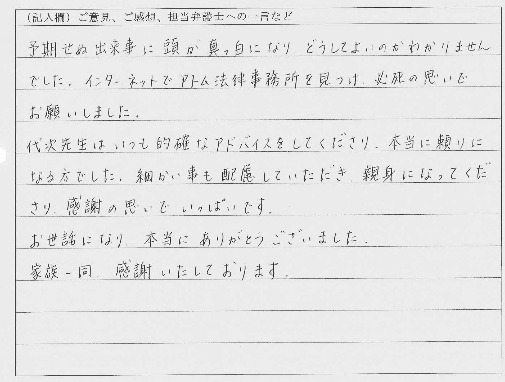 (記入欄)ご意見、ご感想、担当弁護士への一言など
予期せぬ出来事に頭が真っ白になり どうしてよいのかわかりません
でした。インターネットでアトム法律事務所を見つけ、必死の思いで
お願いしました。
代次先生はいつも的確なアドバイスをしてくださり、本当に頼りに
なる方でした。細かい事も配慮していただき、親身になってくだ
さり、感謝の思いで いっぱいです。
お世話になり、本当に ありがとう ございました。
家族一同 感謝いたしております。